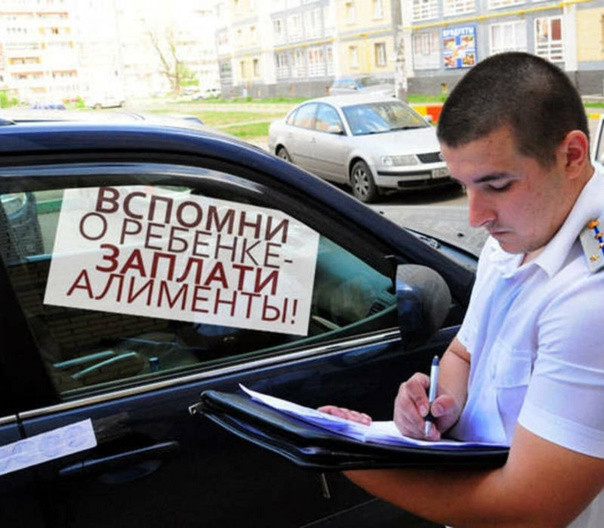 ВСПОМНИ
О РЕБЕНКЕ-
ЗАПЛАТИ
АЛИМЕНТЫ!
ПРОДУКТЫ